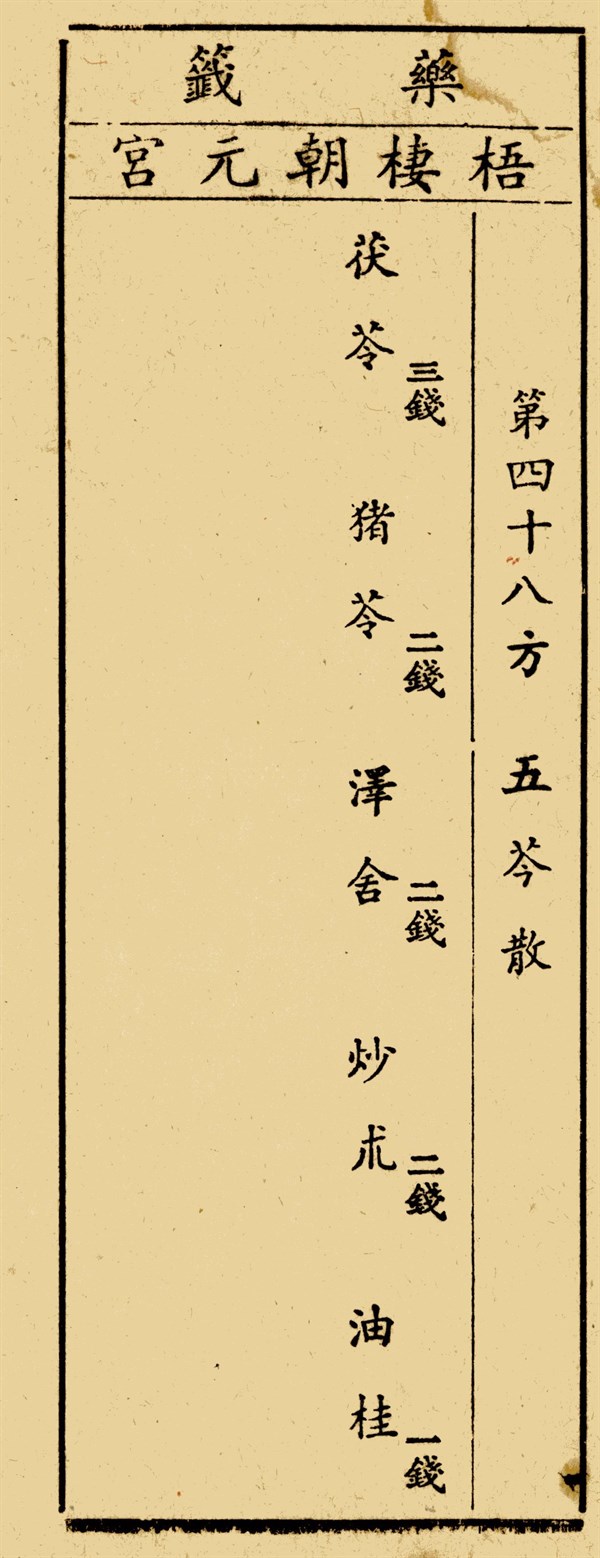 藥籤
梧棲朝元宮
第四十八方 五芩散
茯苓三錢 猪苓二錢 澤舍二錢 炒朮二錢 油桂一錢